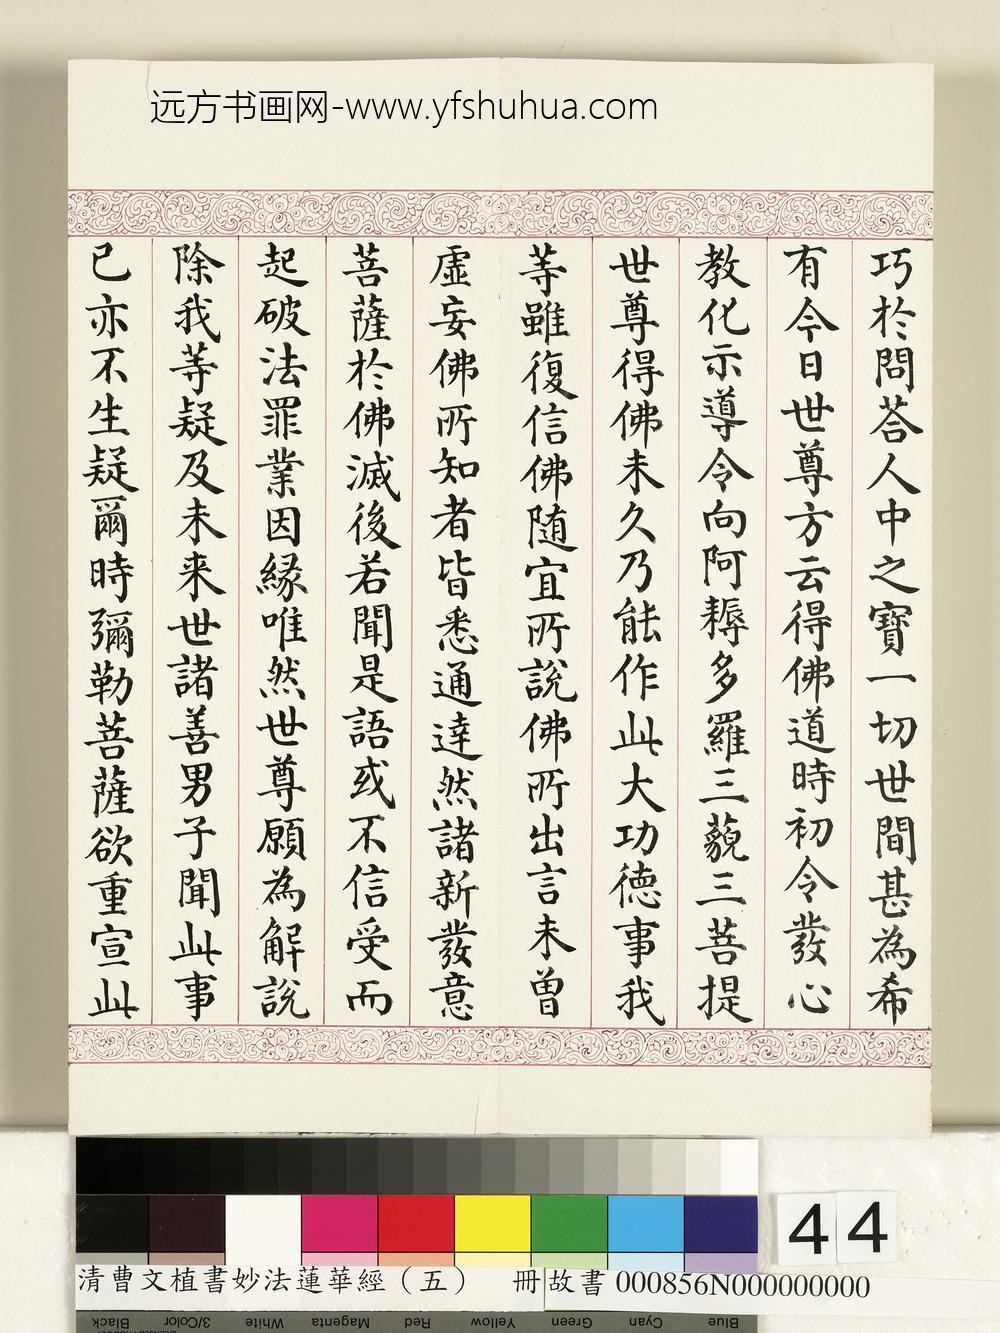 远方书画网-www.yfshuhua.com
巧於問荅人中之寶一切世間甚為希
有今日世尊方云得佛道時初令發心
教化示導令向阿耨多羅三藐三菩提
世尊得佛未久乃能作此大功德事我
等雖復信佛随宜所說佛所出言未曾
虛妄佛所知者皆悉通達然諸新發意
菩薩於佛滅後若聞是語或不信受而
起破法罪業因緣唯然世尊願為解說
除我等疑及未来世諸善男子聞此事
已亦不生疑爾時彌勒菩薩欲重宣此
44
清曹文植書妙法蓮華經（五） 冊 故書 000856N000000000
Black 3/Color White Magenta Red Yellow Green Cyan Blue